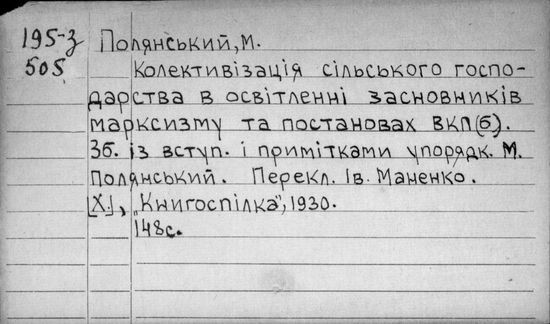 195-з Полянський, М.
505 Колективізація сільського госпо-
дарства в освітленні засновників
марксизму та постановах ВКП(б).
Зб. із вступ. і примітками упорядк. М.
Полянський. Перекл. Ів. Маненко.
[Х.], „Книгоспілка", 1930.
148с.